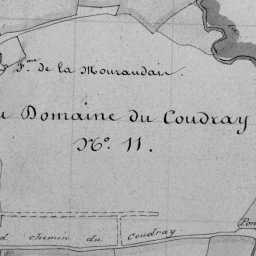 F.me de la Mourandais.
Domaine du Coudray
No. 11.
chemin du Coudray